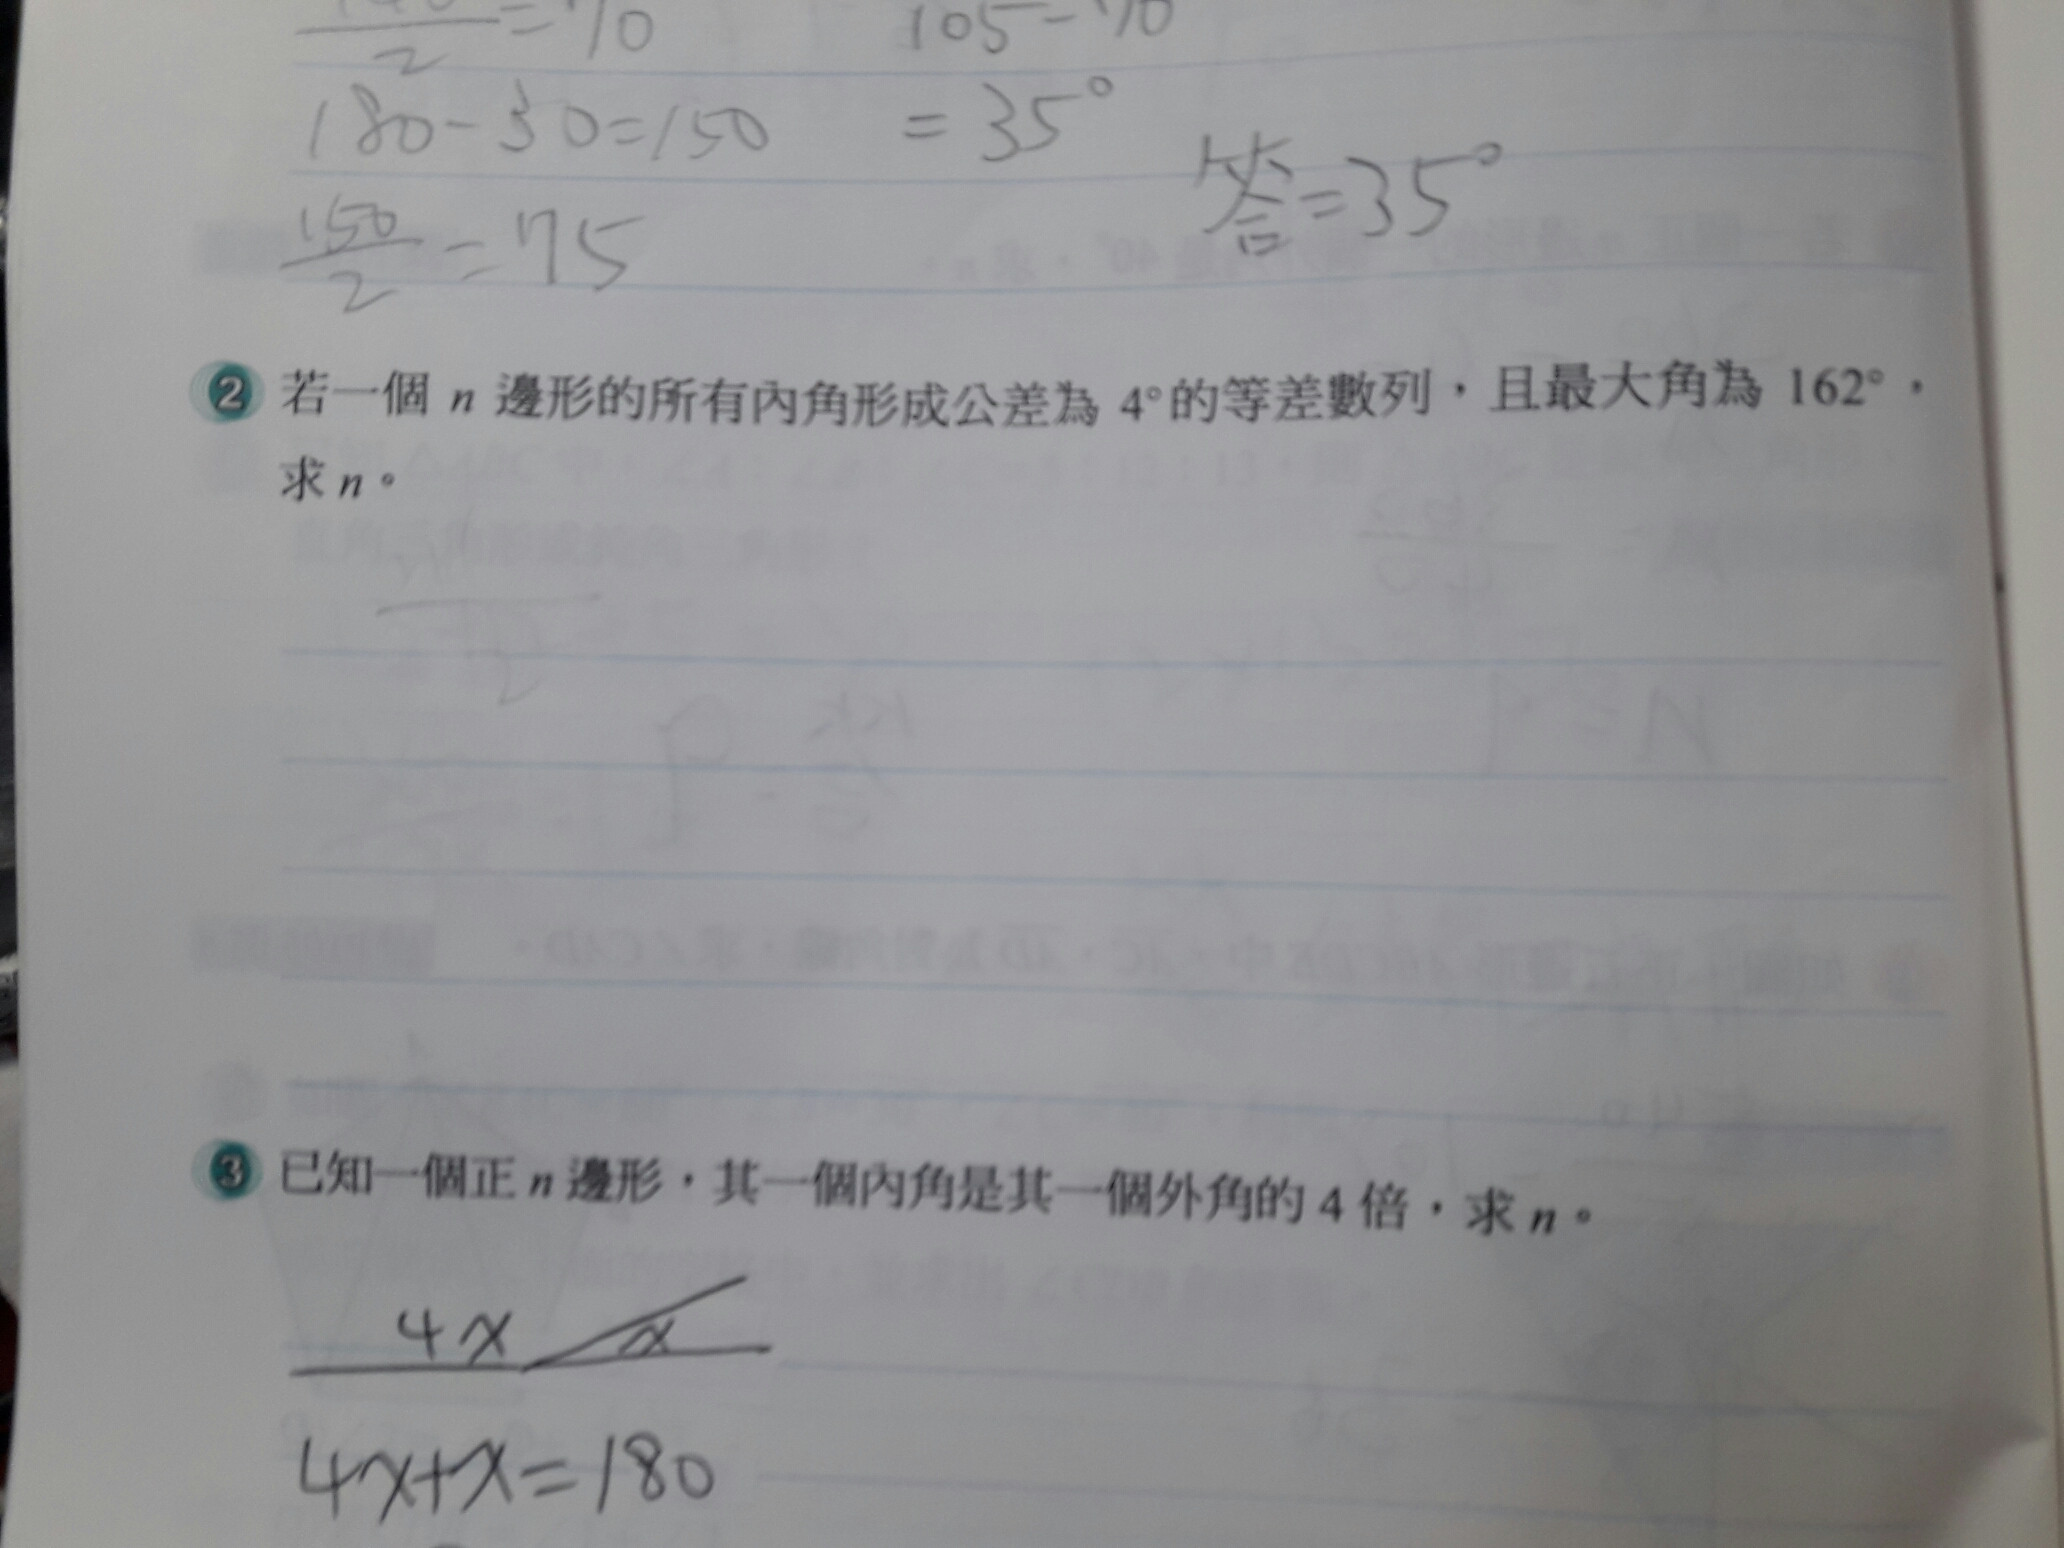 = 70 105 - 70
2
180 - 30 = 150 = 35°
答 = 35°
150
2 = 75
2 若一個 n 邊形的所有內角形成公差為 4° 的等差數列,且最大角為 162°,
求 n。
3 已知一個正 n 邊形,其一個內角是其一個外角的 4 倍,求 n。
4x x
4x+x=180